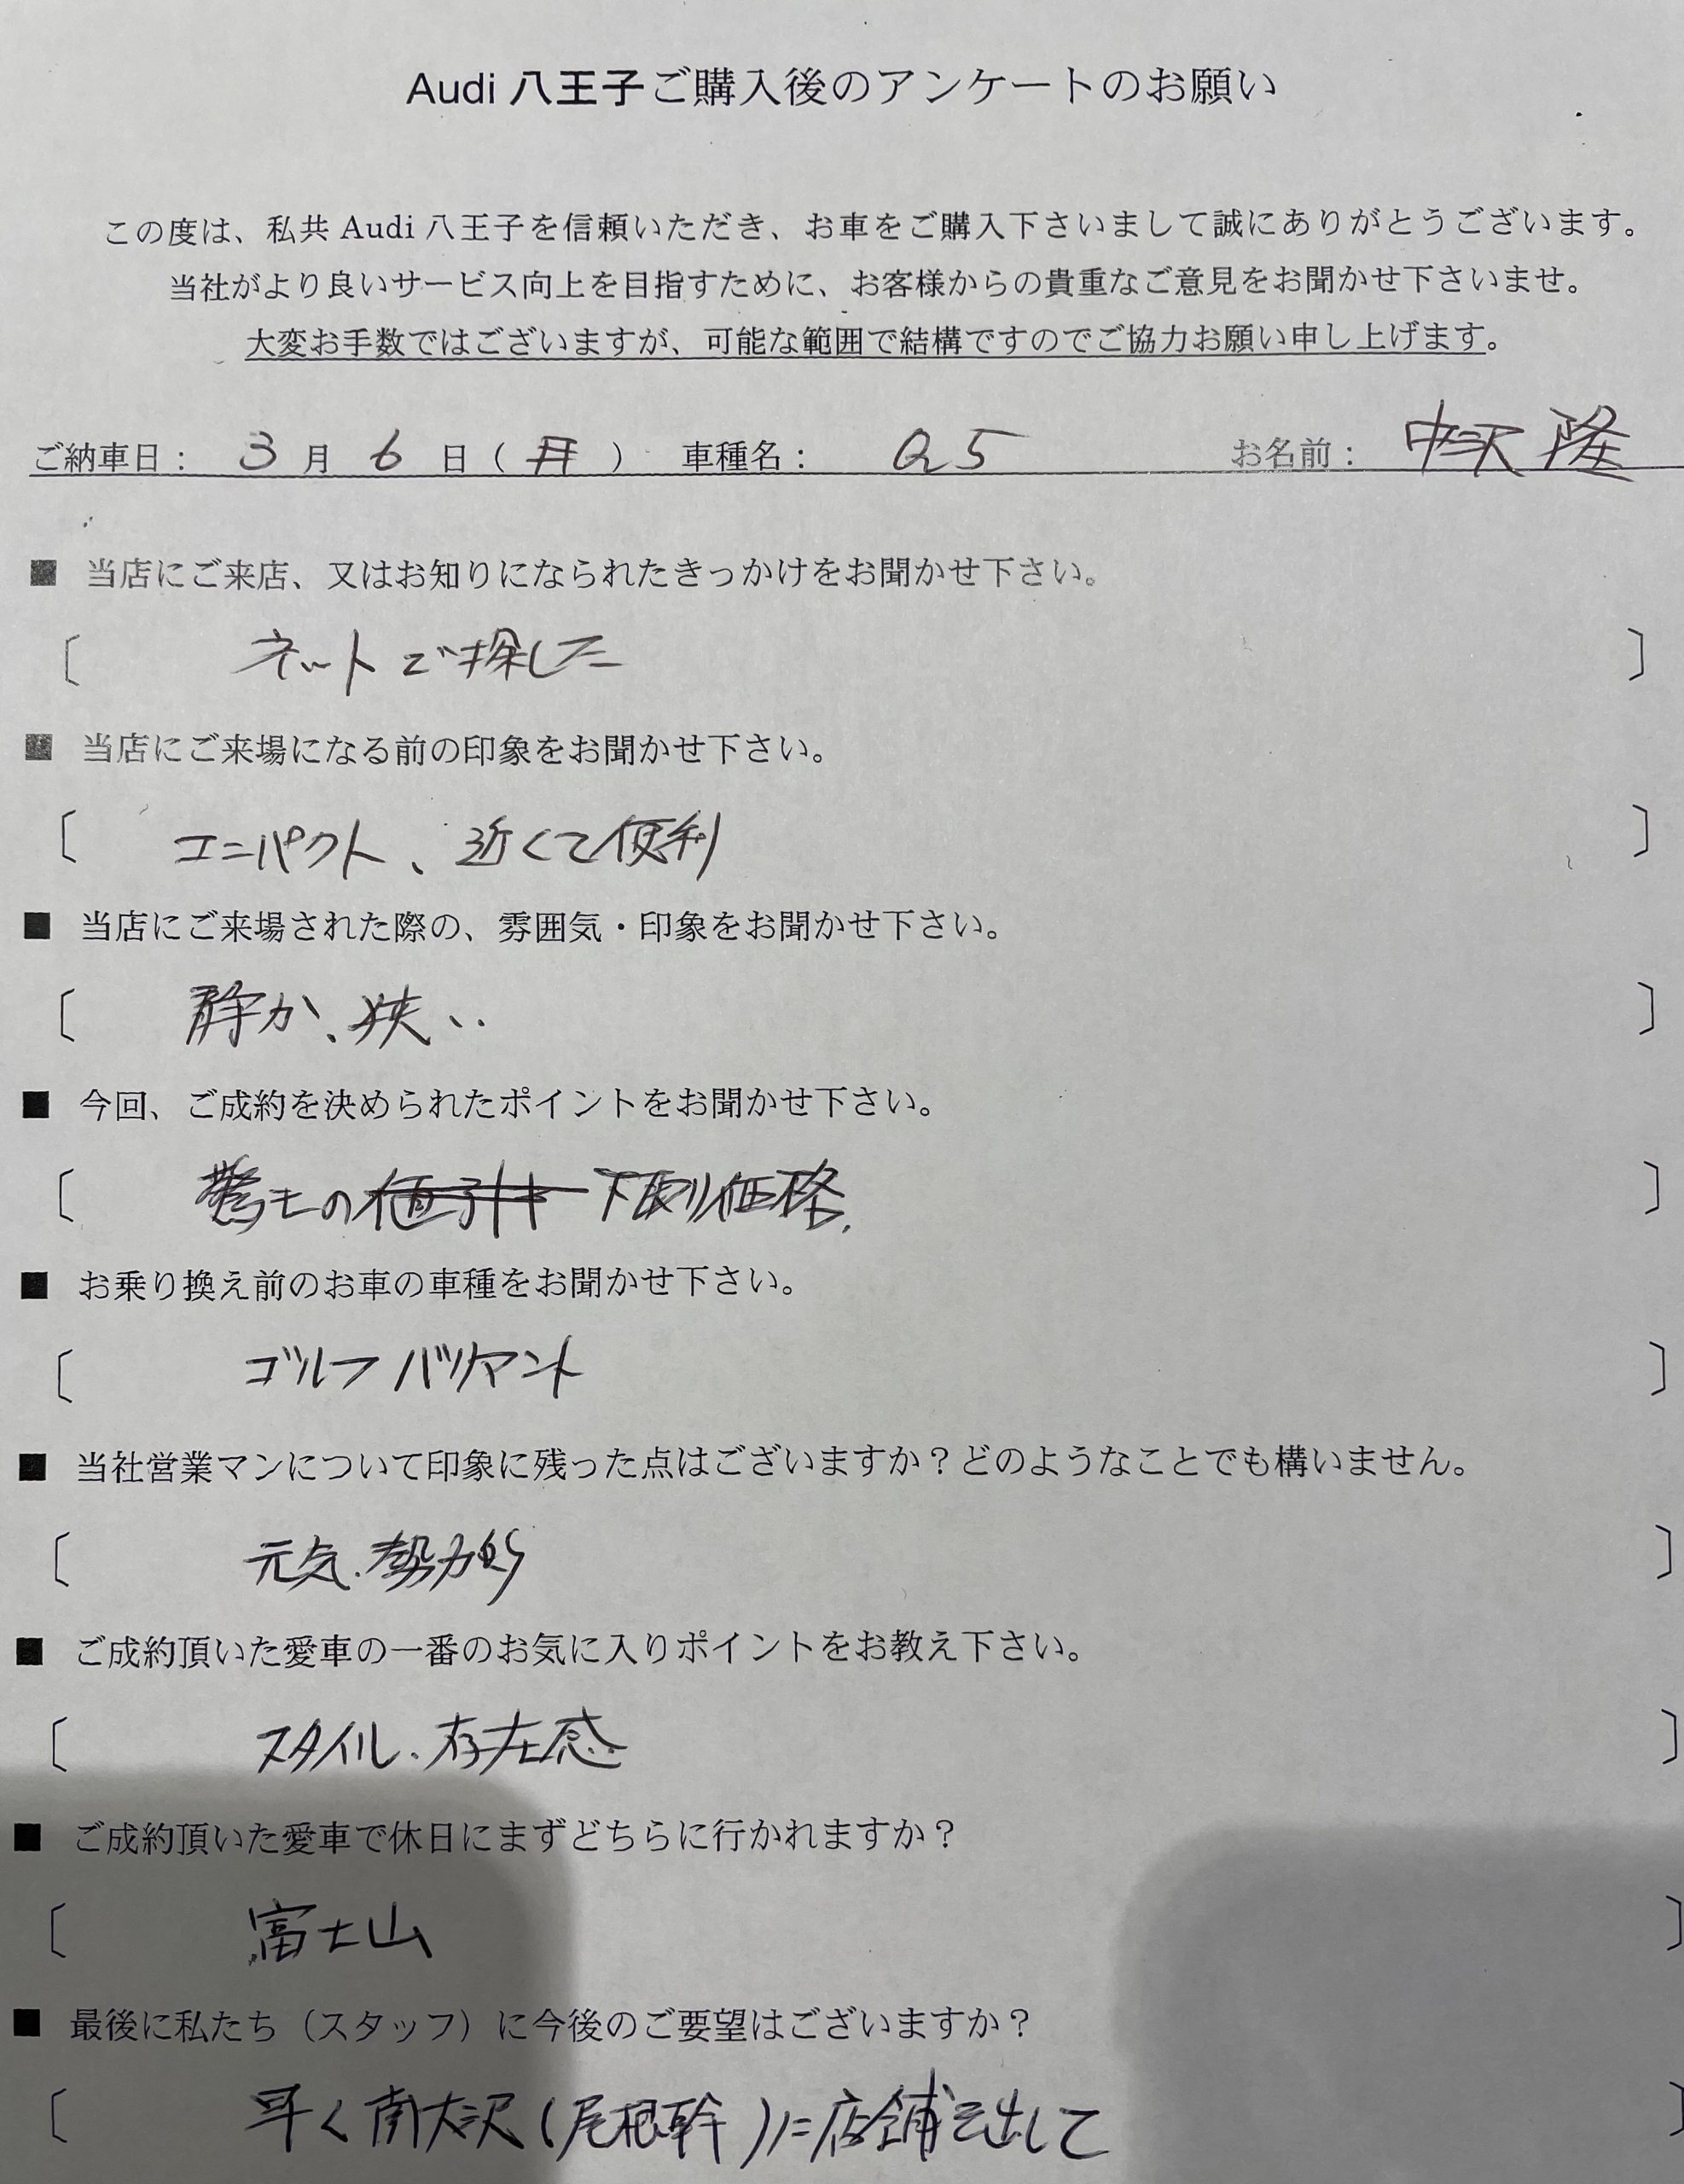 Audi 八王子ご購入後のアンケートのお願い
この度は、私共 Audi 八王子を信頼いただき、お車をご購入下さいまして誠にありがとうございます。
当社がより良いサービス向上を目指すために、お客様からの貴重なご意見をお聞かせ下さいませ。
大変お手数ではございますが、可能な範囲で結構ですのでご協力お願い申し上げます。
ご納車日： 3 月 6 日（ 月 ） 車種名： Q5 お名前： 中沢 隆
■ 当店にご来店、又はお知りになられたきっかけをお聞かせ下さい。
〔 ネットで探した 〕
■ 当店にご来場になる前の印象をお聞かせ下さい。
〔 コンパクト、近くて便利 〕
■ 当店にご来場された際の、雰囲気・印象をお聞かせ下さい。
〔 静か、狭い 〕
■ 今回、ご成約を決められたポイントをお聞かせ下さい。
〔 の値引き 下取り価格 〕
■ お乗り換え前のお車の車種をお聞かせ下さい。
〔 ゴルフ バリアント 〕
■ 当社営業マンについて印象に残った点はございますか？どのようなことでも構いません。
〔 元気、勢力的 〕
■ ご成約頂いた愛車の一番のお気に入りポイントをお教え下さい。
〔 スタイル、存在感 〕
■ ご成約頂いた愛車で休日にまずどちらに行かれますか？
〔 富士山 〕
■ 最後に私たち（スタッフ）に今後のご要望はございますか？
〔 早く南大沢（尾根幹）に店舗を出して 〕